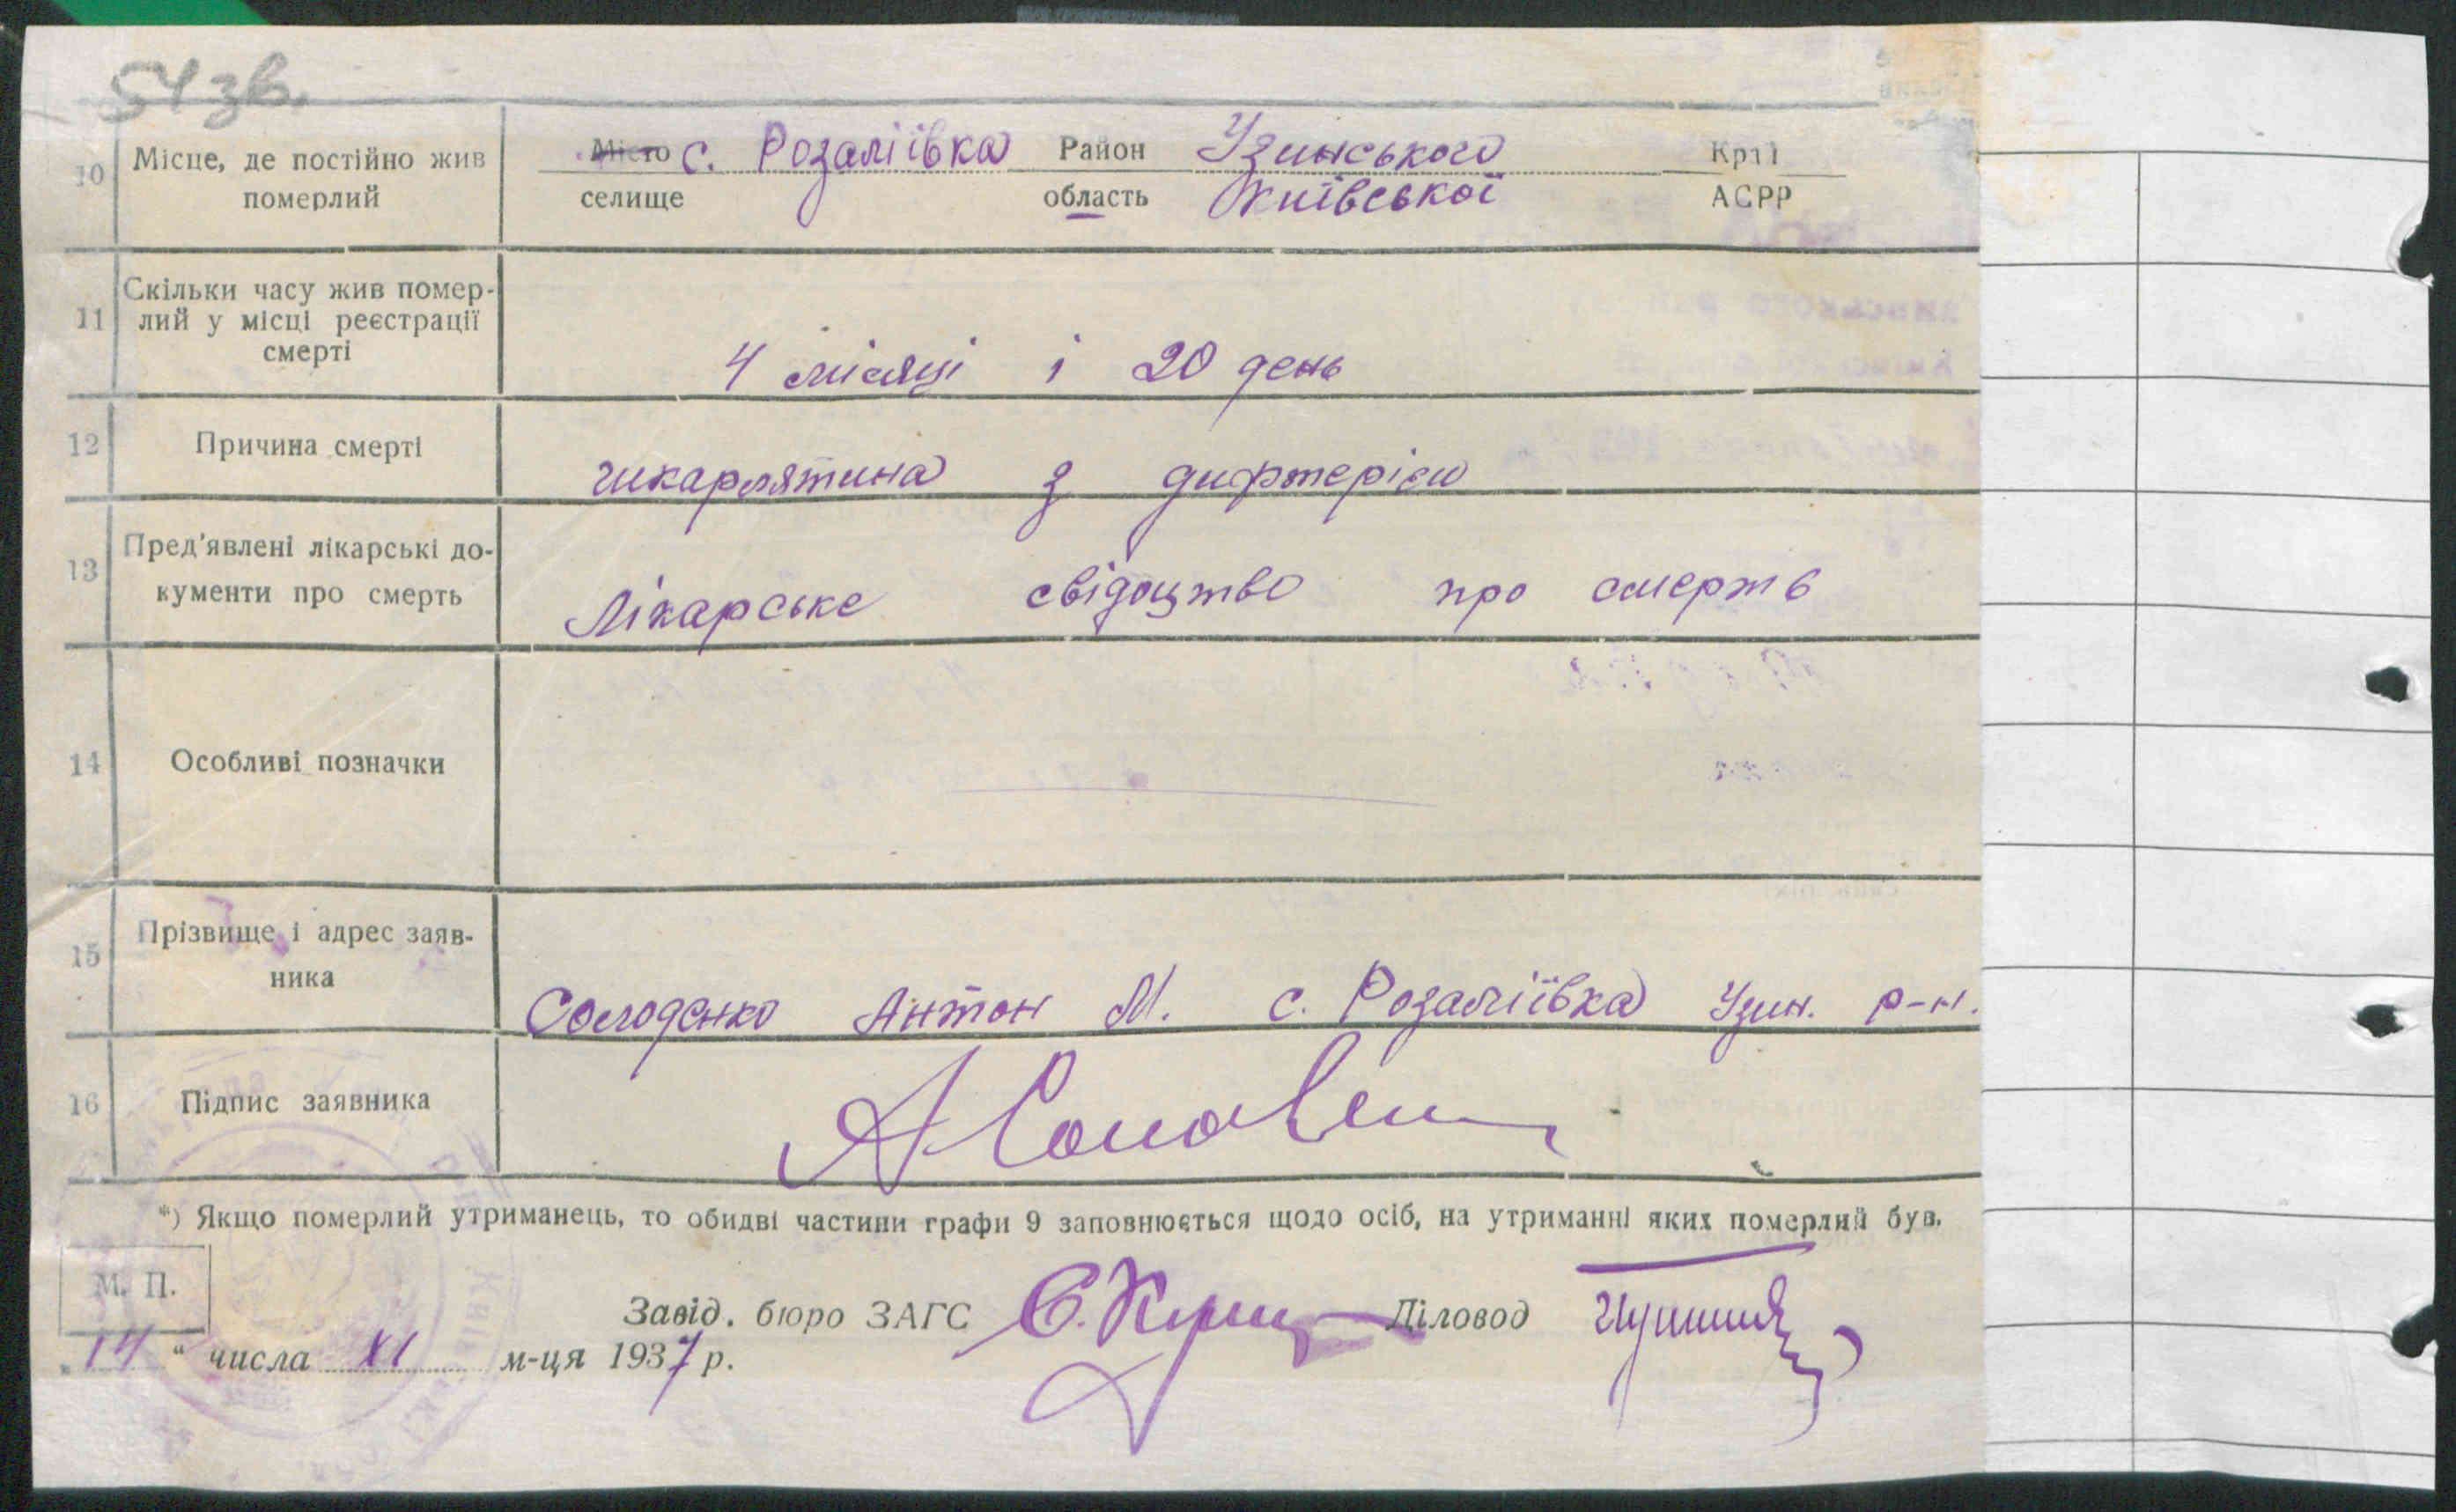 54 зв.
10 Місце, де постійно жив померлий
Місто с. Розаліївка Район Узинського Край
селище область Київської АСРР
11 Скільки часу жив помер-
лий у місці реєстрації
смерті
4 місяці і 20 день
12 Причина смерті
шкарлятина з дифтерією
13 Пред'явлені лікарські до-
кументи про смерть
Лікарське свідоцтво про смерть
14 Особливі позначки
15 Прізвище і адрес заяв-
ника
Солоденко Антон М. с. Розаліївка Узин. р-н.
16 Підпис заявника
*) Якщо померлий утриманець, то обидві частини графи 9 заповнюється щодо осіб, на утриманні яких померлий був.
М. П.
Завід. бюро ЗАГС Діловод
„14“ числа XI м-ця 1937 р.